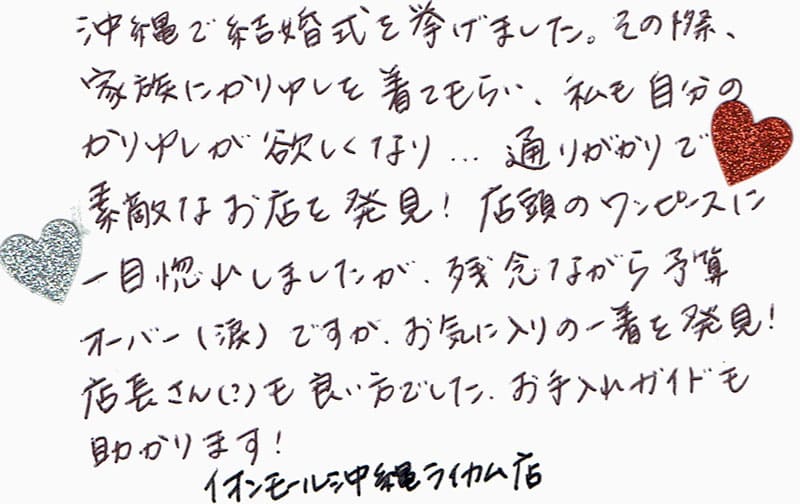 沖縄で結婚式を挙げました。その際、
家族にかりゆしを着てもらい、私も自分の
かりゆしが欲しくなり…通りがかりで
素敵なお店を発見!店頭のワンピースに
一目惚れしましたが、残念ながら予算
オーバー(涙)ですが、お気に入りの一着を発見!
店長さん(?)も良い方でした、お手入れガイドも
助かります!
イオンモール沖縄ライカム店